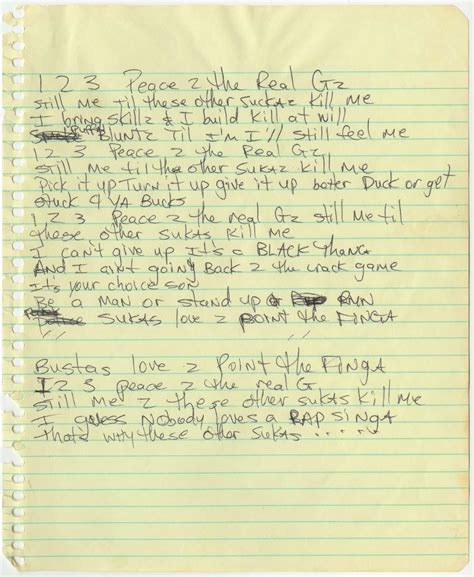 1 2 3 Peace 2 the Real Gz
still Me Til these other suckaz Kill Me
I bring skillz & I build Kill at will
Puff Bluntz Til I'm I'll still feel me
1 2 3 Peace 2 the Real Gz
still Me til the other sukaz Kill Me
Pick it up Turn it up give it up boter Duck or get
stuck 4 YA Bucks
1 2 3 Peace 2 the real Gz still Me til
these other sukas Kill Me
I can't give up It's a BLACK thang
And I aint going Back 2 the crack game
It's your choice son
Be a MAN or stand up RUN
SUKAS love 2 point the FINGA
Bustas love 2 Point the FINGA
1 2 3 peace 2 the real G
still Me 2 these other sukas Kill Me
I guess Nobody loves a RAP SINGA
that's why these other sukas .....